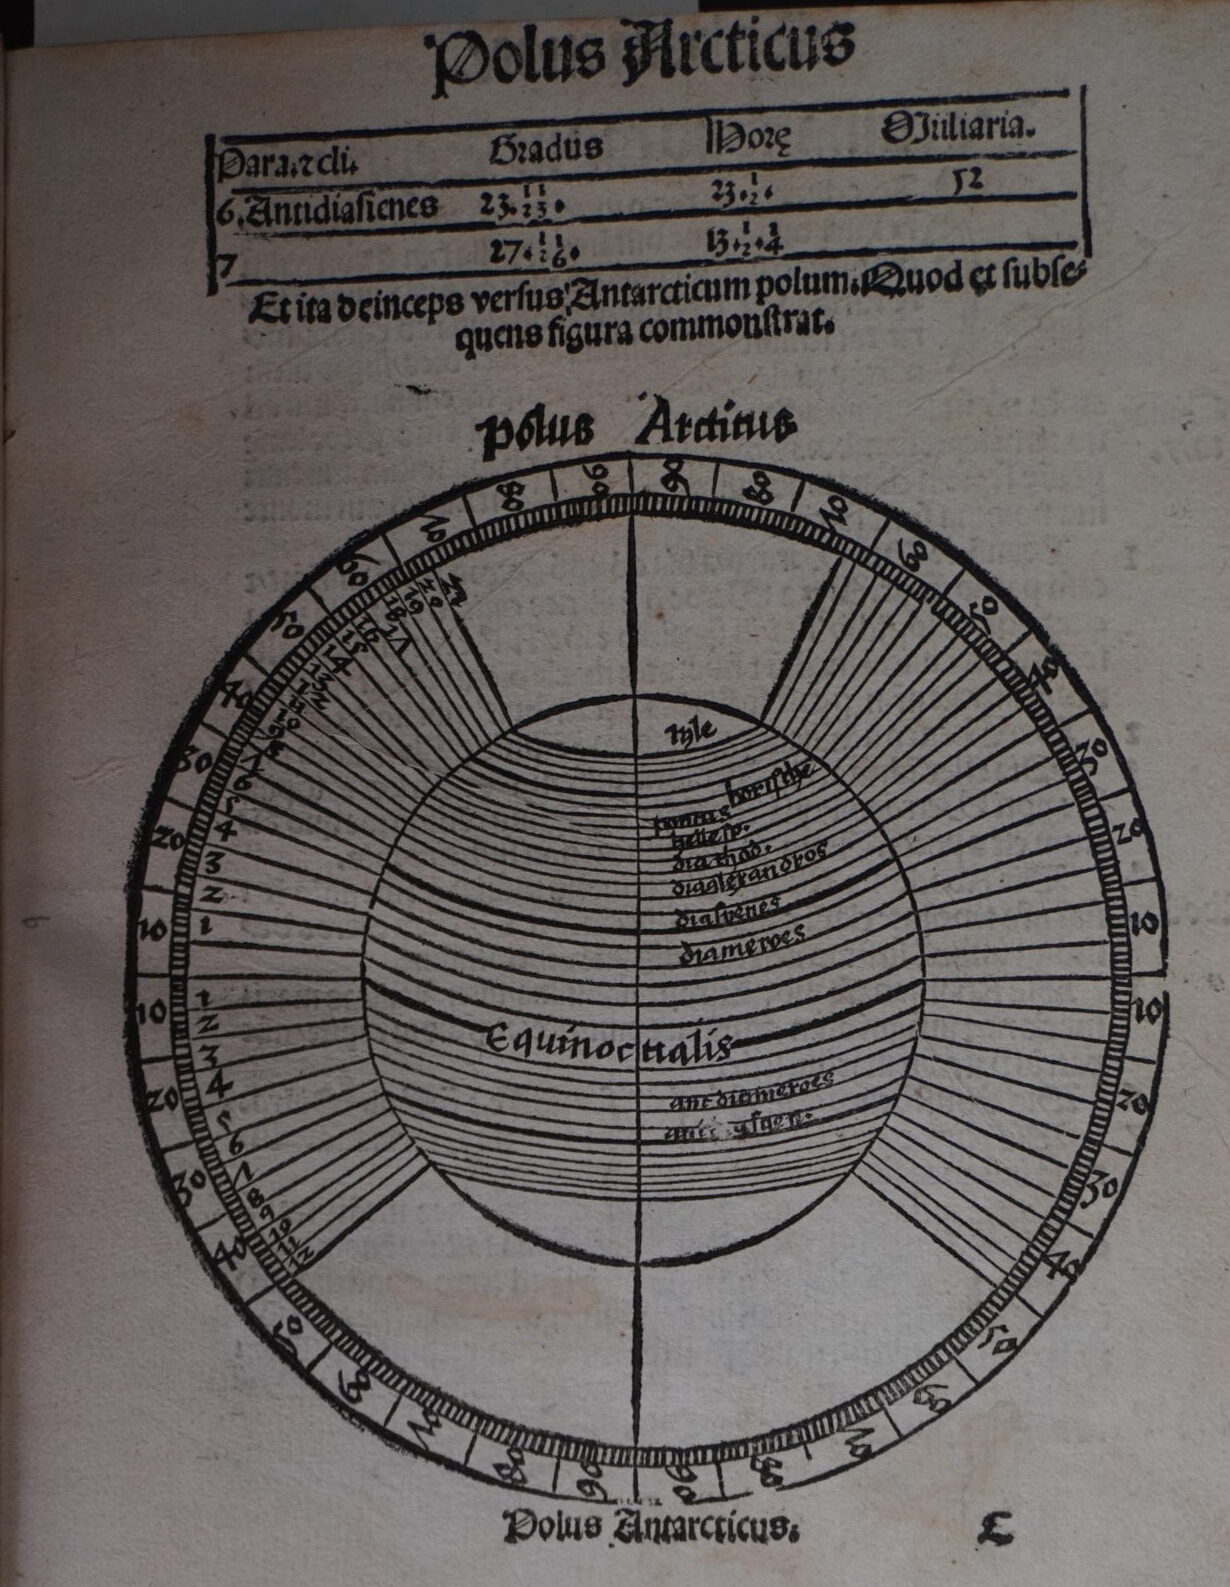 Polus Arcticus
Para. ⁊ cli. Gradus Horę Miliaria.
6. Antidiasienes 23. 1/2 1/3. 23. 1/2. 52
7 27. 1/2 1/6. 13. 1/2. 1/4
Et ita deinceps versus Antarcticum polum. Quod et subse-
quens figura commonstrat.
Polus Arcticus
90 90
80 80
70 70
60 60
50 50
40 40
30 30
20 20
10 10
10 10
20 20
30 30
40 40
50 50
60 60
70 70
80 80
90 90
21
20
19
18
17
16
15
14
13
12
11
10
9
8
7
6
5
4
3
2
1
1
2
3
4
5
6
7
8
9
10
11
12
tyle
boristhe
pontus
hellesp.
dia rhod.
diaalexandros
diasyenes
diameroes
Equinoctialis
antdiameroes
Polus Antarcticus.
C